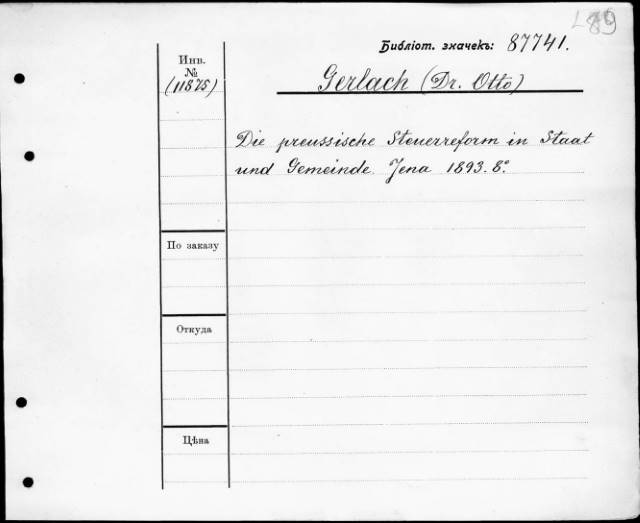 Библіот. значекъ: 87741.
Инв.
№
(11875)
Gerlach (Dr. Otto)
Die preussische Steuerreform in Staat
und Gemeinde. Jena 1893. 8º.
По заказу
Откуда
Цѣна